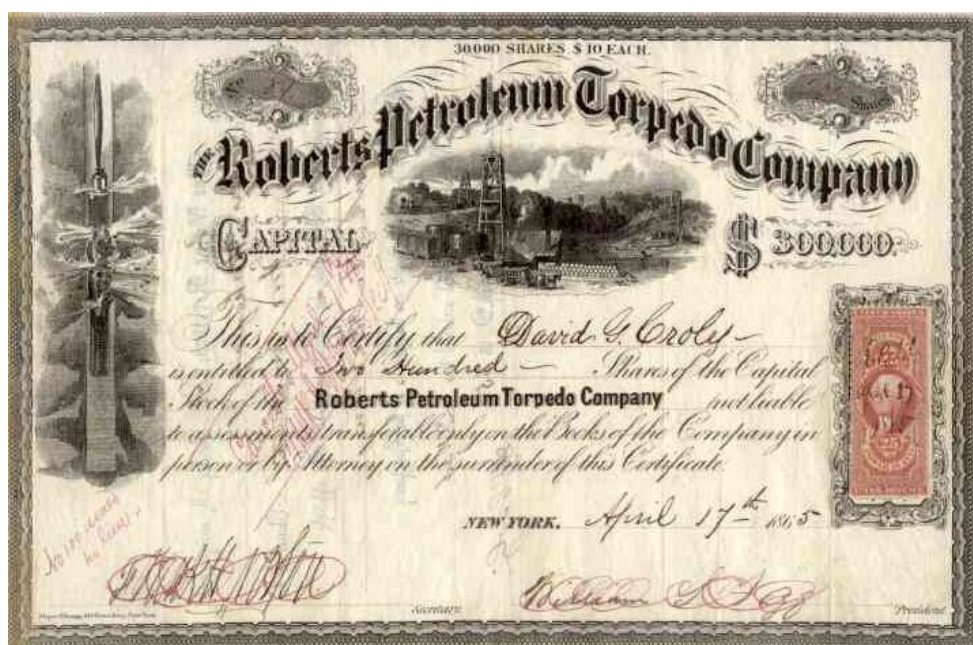 30000 SHARES $10 EACH.
No
Shares
THE Roberts Petroleum Torpedo Company
CAPITAL $300.000.
This is to Certify that David G. Croly
is entitled to Two Hundred Shares of the Capital
Stock of the Roberts Petroleum Torpedo Company not liable
to assessments, transferable only on the Books of the Company in
person or by Attorney on the surrender of this Certificate.
NEW YORK. April 17th 1865
No 100 issued
in lieu
25
Secretary. William President.